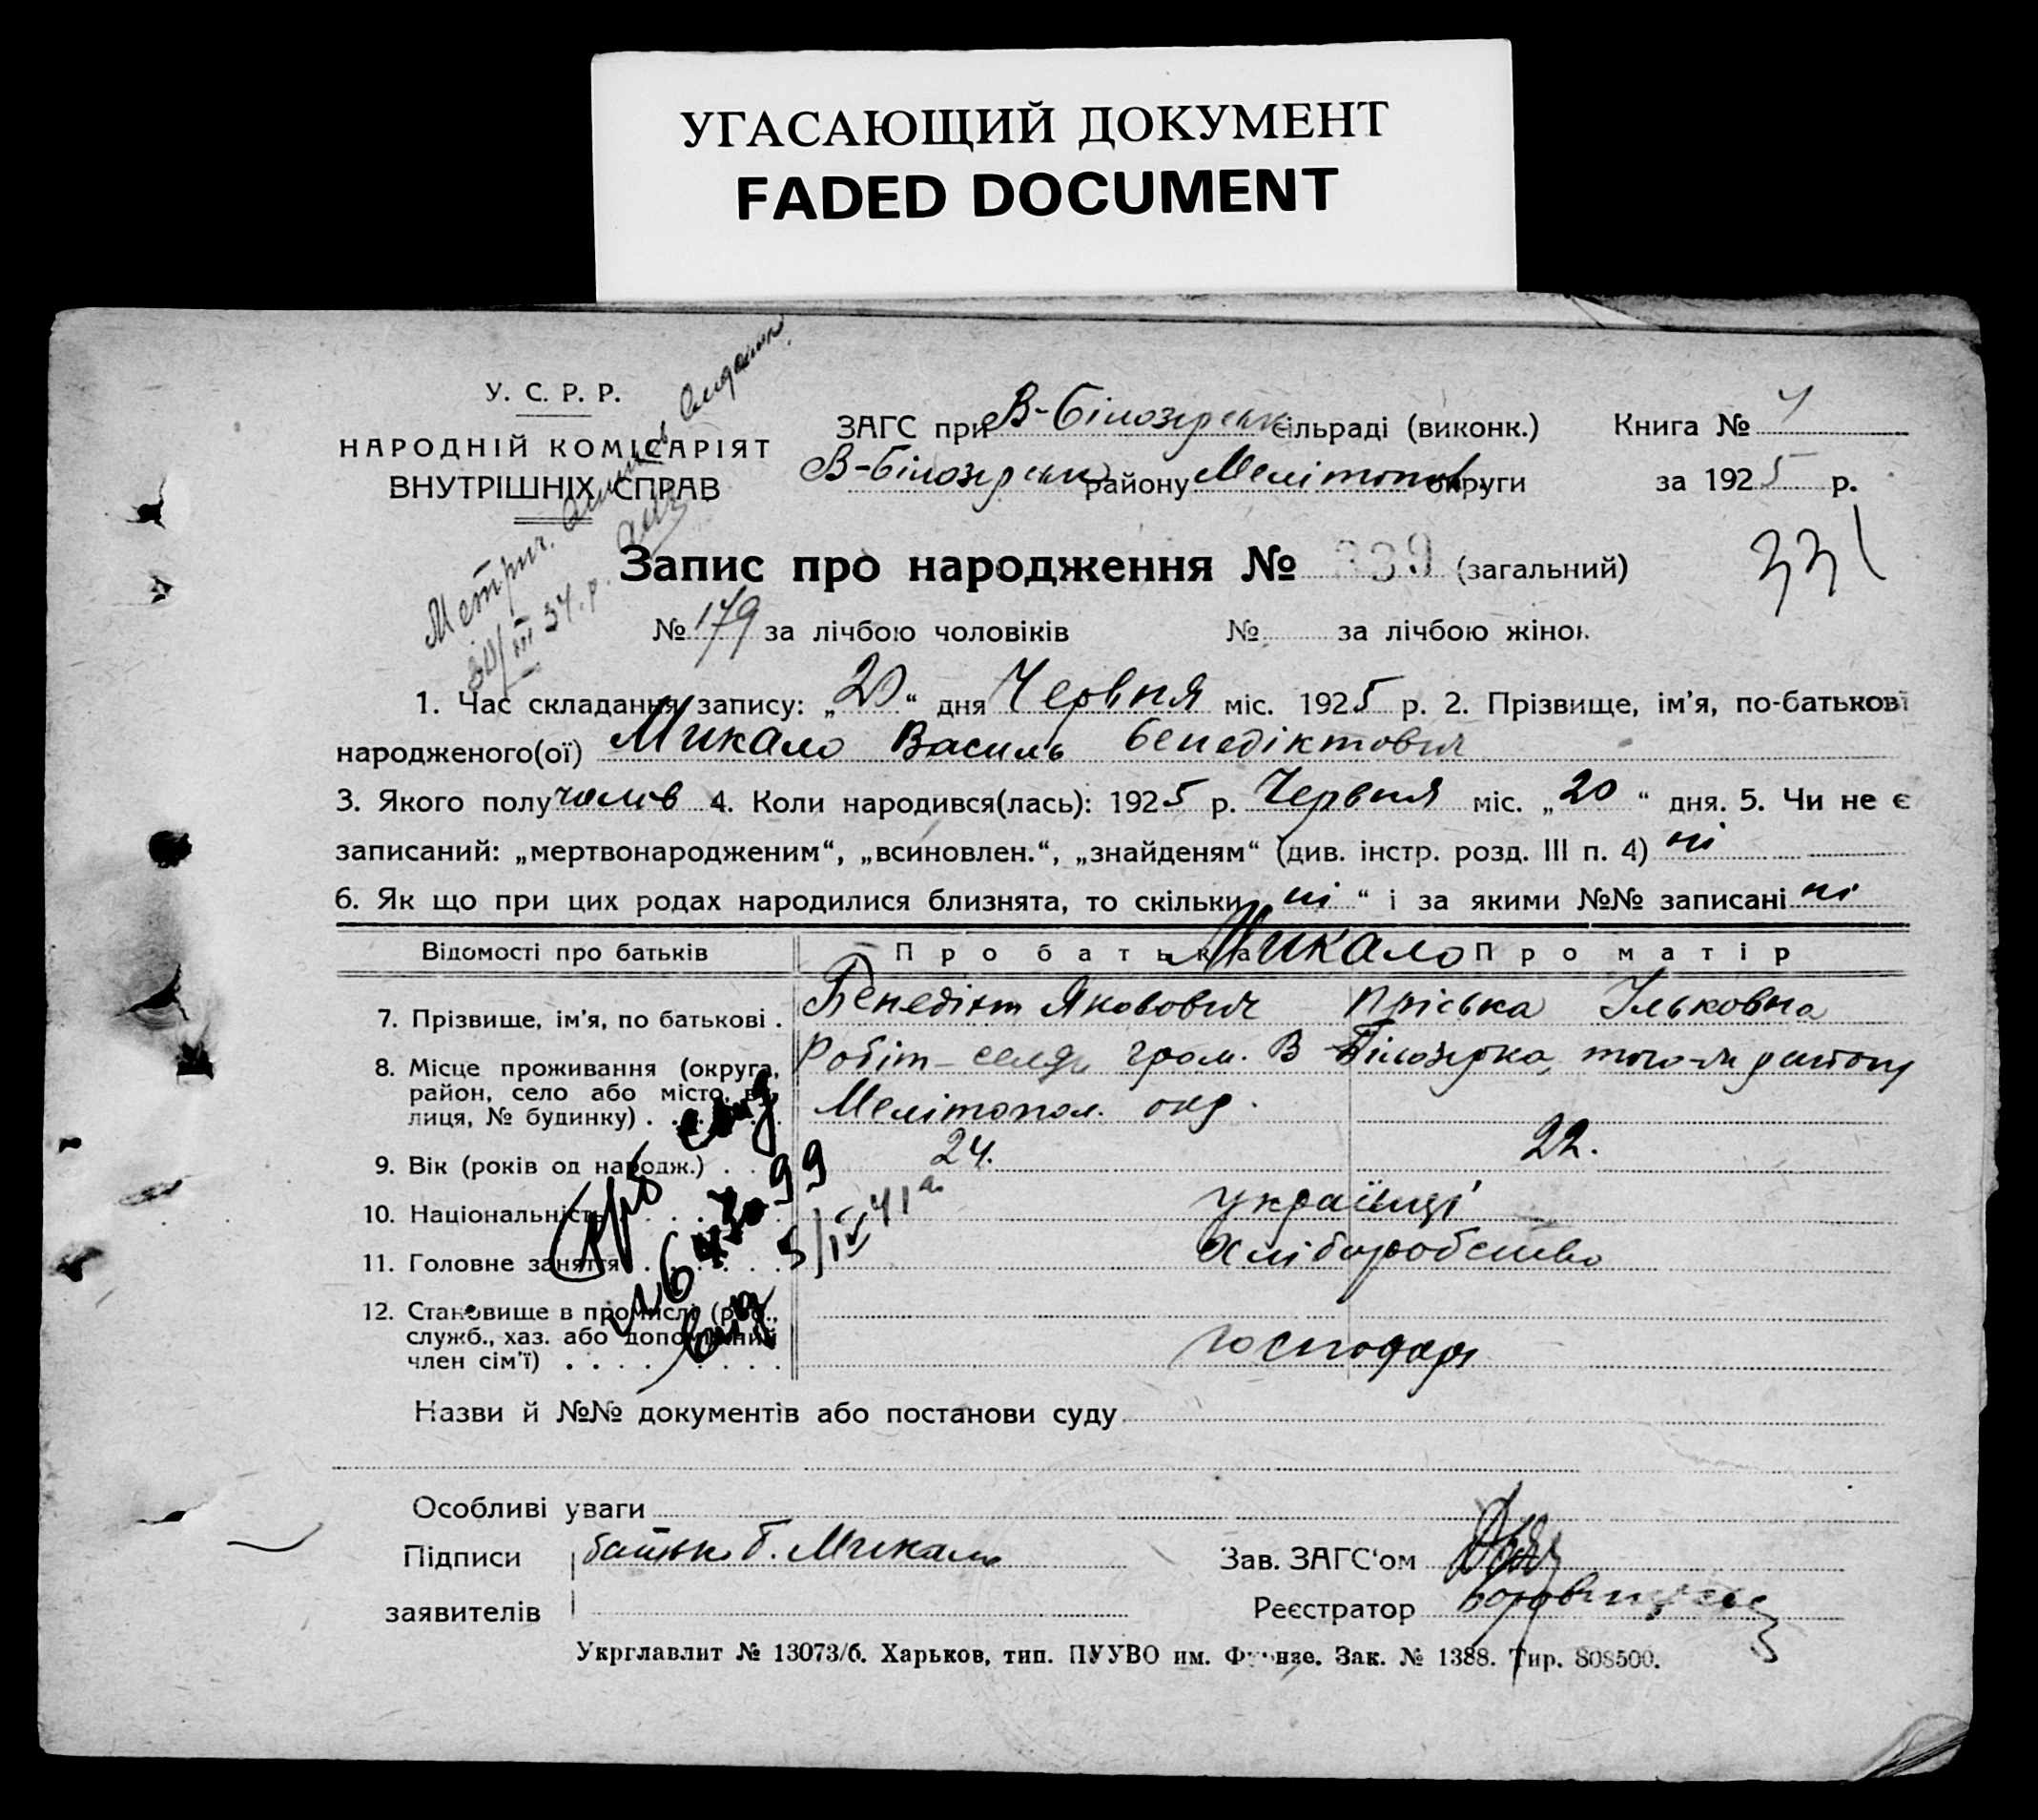 УГАСАЮЩИЙ ДОКУМЕНТ
FADED DOCUMENT
У. С. Р. Р.
НАРОДНІЙ КОМІСАРІЯТ
ВНУТРІШНІХ СПРАВ
ЗАГС при В-Білозерськ сільраді (виконк.)
Книга №
В-Білозерськ району Мелітопов. округи
за 1925 р.
Метрич. видано
30/III 34. р.
Запис про народження № 339 (загальний)
331
№ 179 за лічбою чоловіків № за лічбою жінок.
1. Час складання запису: „20“ дня Червня міс. 1925 р. 2. Прізвище, ім’я, по-батькові
народженого(ої) Микало Василь Бенедіктович
3. Якого полу чолов 4. Коли народився(лась): 1925 р. Червня міс. „20“ дня. 5. Чи не є
записаний: „мертвонародженим“, „всиновлен.“, „знайденям“ (див. інстр. розд. III п. 4) ні
6. Як що при цих родах народилися близнята, то скільки „ні“ і за якими №№ записані ні
Відомості про батьків Про батька Микало Про матір
7. Прізвище, ім’я, по батькові . Бенедікт Якович Пріська Ільковна
8. Місце проживання (округа, Робіт-селян гром. В-Білозірка, того-ж району
район, село або місто, ву-
лиця, № будинку) . Мелітопол. окр.
9. Вік (років од народж.) . . 24. 22.
10. Національність українці
11. Головне заняття Хліборобство
5/IV 41 а.
12. Становище в промислі (роб.,
служб., хаз. або допоміжний
член сім’ї) . . . . господар
Назви й №№ документів або постанови суду
Особливі уваги
Підписи батько Б. Микало
Зав. ЗАГС‘ом
заявителів
Реєстратор
Укрглавлит № 13073/б. Харьков, тип. ПУУВО им. Фрунзе. Зак. № 1388. Тир. 808500.